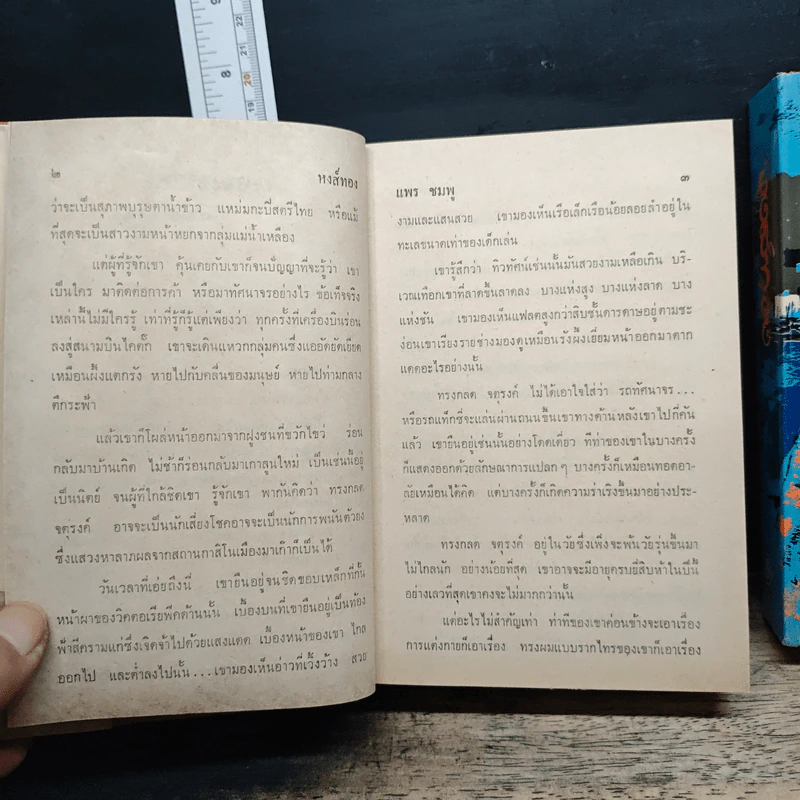 ๒
หงส์ทอง
ว่าจะเป็นสุภาพบุรุษตาน้ำข้าว แหม่มกะปิสตรีไทย หรือแม้
ที่สุดจะเป็นสาวงามหน้าหยกจากลุ่มแม่น้ำเหลือง
แต่ผู้ที่รู้จักเขา คุ้นเคยกับเขาก็จนปัญญาที่จะรู้ว่า เขา
เป็นใคร มาติดต่อการค้า หรือมาทัศนาจรอย่างไร ข้อเท็จจริง
เหล่านี้ไม่มีใครรู้ เท่าที่รู้ก็รู้แต่เพียงว่า ทุกครั้งที่เครื่องบินร่อน
ลงสู่สนามบินไคตั๊ก เขาจะเดินแหวกกลุ่มคนซึ่งแออัดยัดเยียด
เหมือนผึ้งแตกรัง หายไปกับคลื่นของมนุษย์ หายไปท่ามกลาง
ตึกระฟ้า
แล้วเขาก็โผล่หน้าออกมาจากฝูงชนที่ขวักไขว่ ร่อน
กลับมาบ้านเกิด ไม่ช้าก็ร่อนกลับมาเกาลูนใหม่ เป็นเช่นนี้อยู่
เป็นนิตย์ จนผู้ที่ใกล้ชิดเขา รู้จักเขา พากันคิดว่า ทรงกลด
จตุรงค์ อาจจะเป็นนักเสี่ยงโชคอาจจะเป็นนักการพนันตัวยง
ซึ่งแสวงหาลาภผลจากสถานกาสิโนเมืองมาเก๊าก็เป็นได้
วันเวลาที่เอ่ยถึงนี้ เขายืนอยู่จนชิดขอบเหล็กที่กั้น
หน้าผาของวิคตอเรียพีคด้านนั้น เบื้องบนที่เขายืนอยู่เป็นท้อง
ฟ้าสีครามแก่ซึ่งเจิดจ้าไปด้วยแสงแดด เบื้องหน้าของเขา ไกล
ออกไป และต่ำลงไปนั้น...เขามองเห็นอ่าวที่เวิ้งว้าง สวย
แพร ชมพู
๓
งามและแสนสวย เขามองเห็นเรือเล็กเรือน้อยลอยลำอยู่ใน
ทะเลขนาดเท่าของเด็กเล่น
เขารู้สึกว่า ทิวทัศน์เช่นนั้นมันสวยงามเหลือเกิน บริ-
เวณเทือกเขาที่ลาดชันลาดลง บางแห่งสูง บางแห่งลาด บาง
แห่งชัน เขามองเห็นแฟลตสูงกว่าสิบชั้นดาษดาอยู่ตามชะ-
ง่อนเขาเรียงรายช่างมองดูเหมือนรังผึ้งเยี่ยมหน้าออกมาตาก
แดดอะไรอย่างนั้น
ทรงกลด จตุรงค์ ไม่ได้เอาใจใส่ว่า รถทัศนาจร...
หรือรถแท็กซี่จะแล่นผ่านถนนขึ้นเขาทางด้านหลังเขาไปกี่คัน
แล้ว เขายืนอยู่เช่นนั้นอย่างโดดเดี่ยว ทีท่าของเขาในบางครั้ง
ก็แสดงออกด้วยลักษณาการแปลก ๆ บางครั้งก็เหมือนทอดอา-
ลัยเหมือนไร้คิด แต่บางครั้งก็เกิดความร่าเริงขึ้นมาอย่างประ-
หลาด
ทรงกลด จตุรงค์ อยู่ในวัยซึ่งเพิ่งจะพ้นวัยรุ่นขึ้นมา
ไม่ไกลนัก อย่างน้อยที่สุด เขาอาจจะมีอายุครบยี่สิบห้าในปีนี้
อย่างเลวที่สุดเขาคงจะไม่มากกว่านั้น
แต่อะไรไม่สำคัญเท่า ท่าทีของเขาค่อนข้างจะเอาเรื่อง
การแต่งกายก็เอาเรื่อง ทรงผมแบบรากไทรของเขาก็เอาเรื่อง